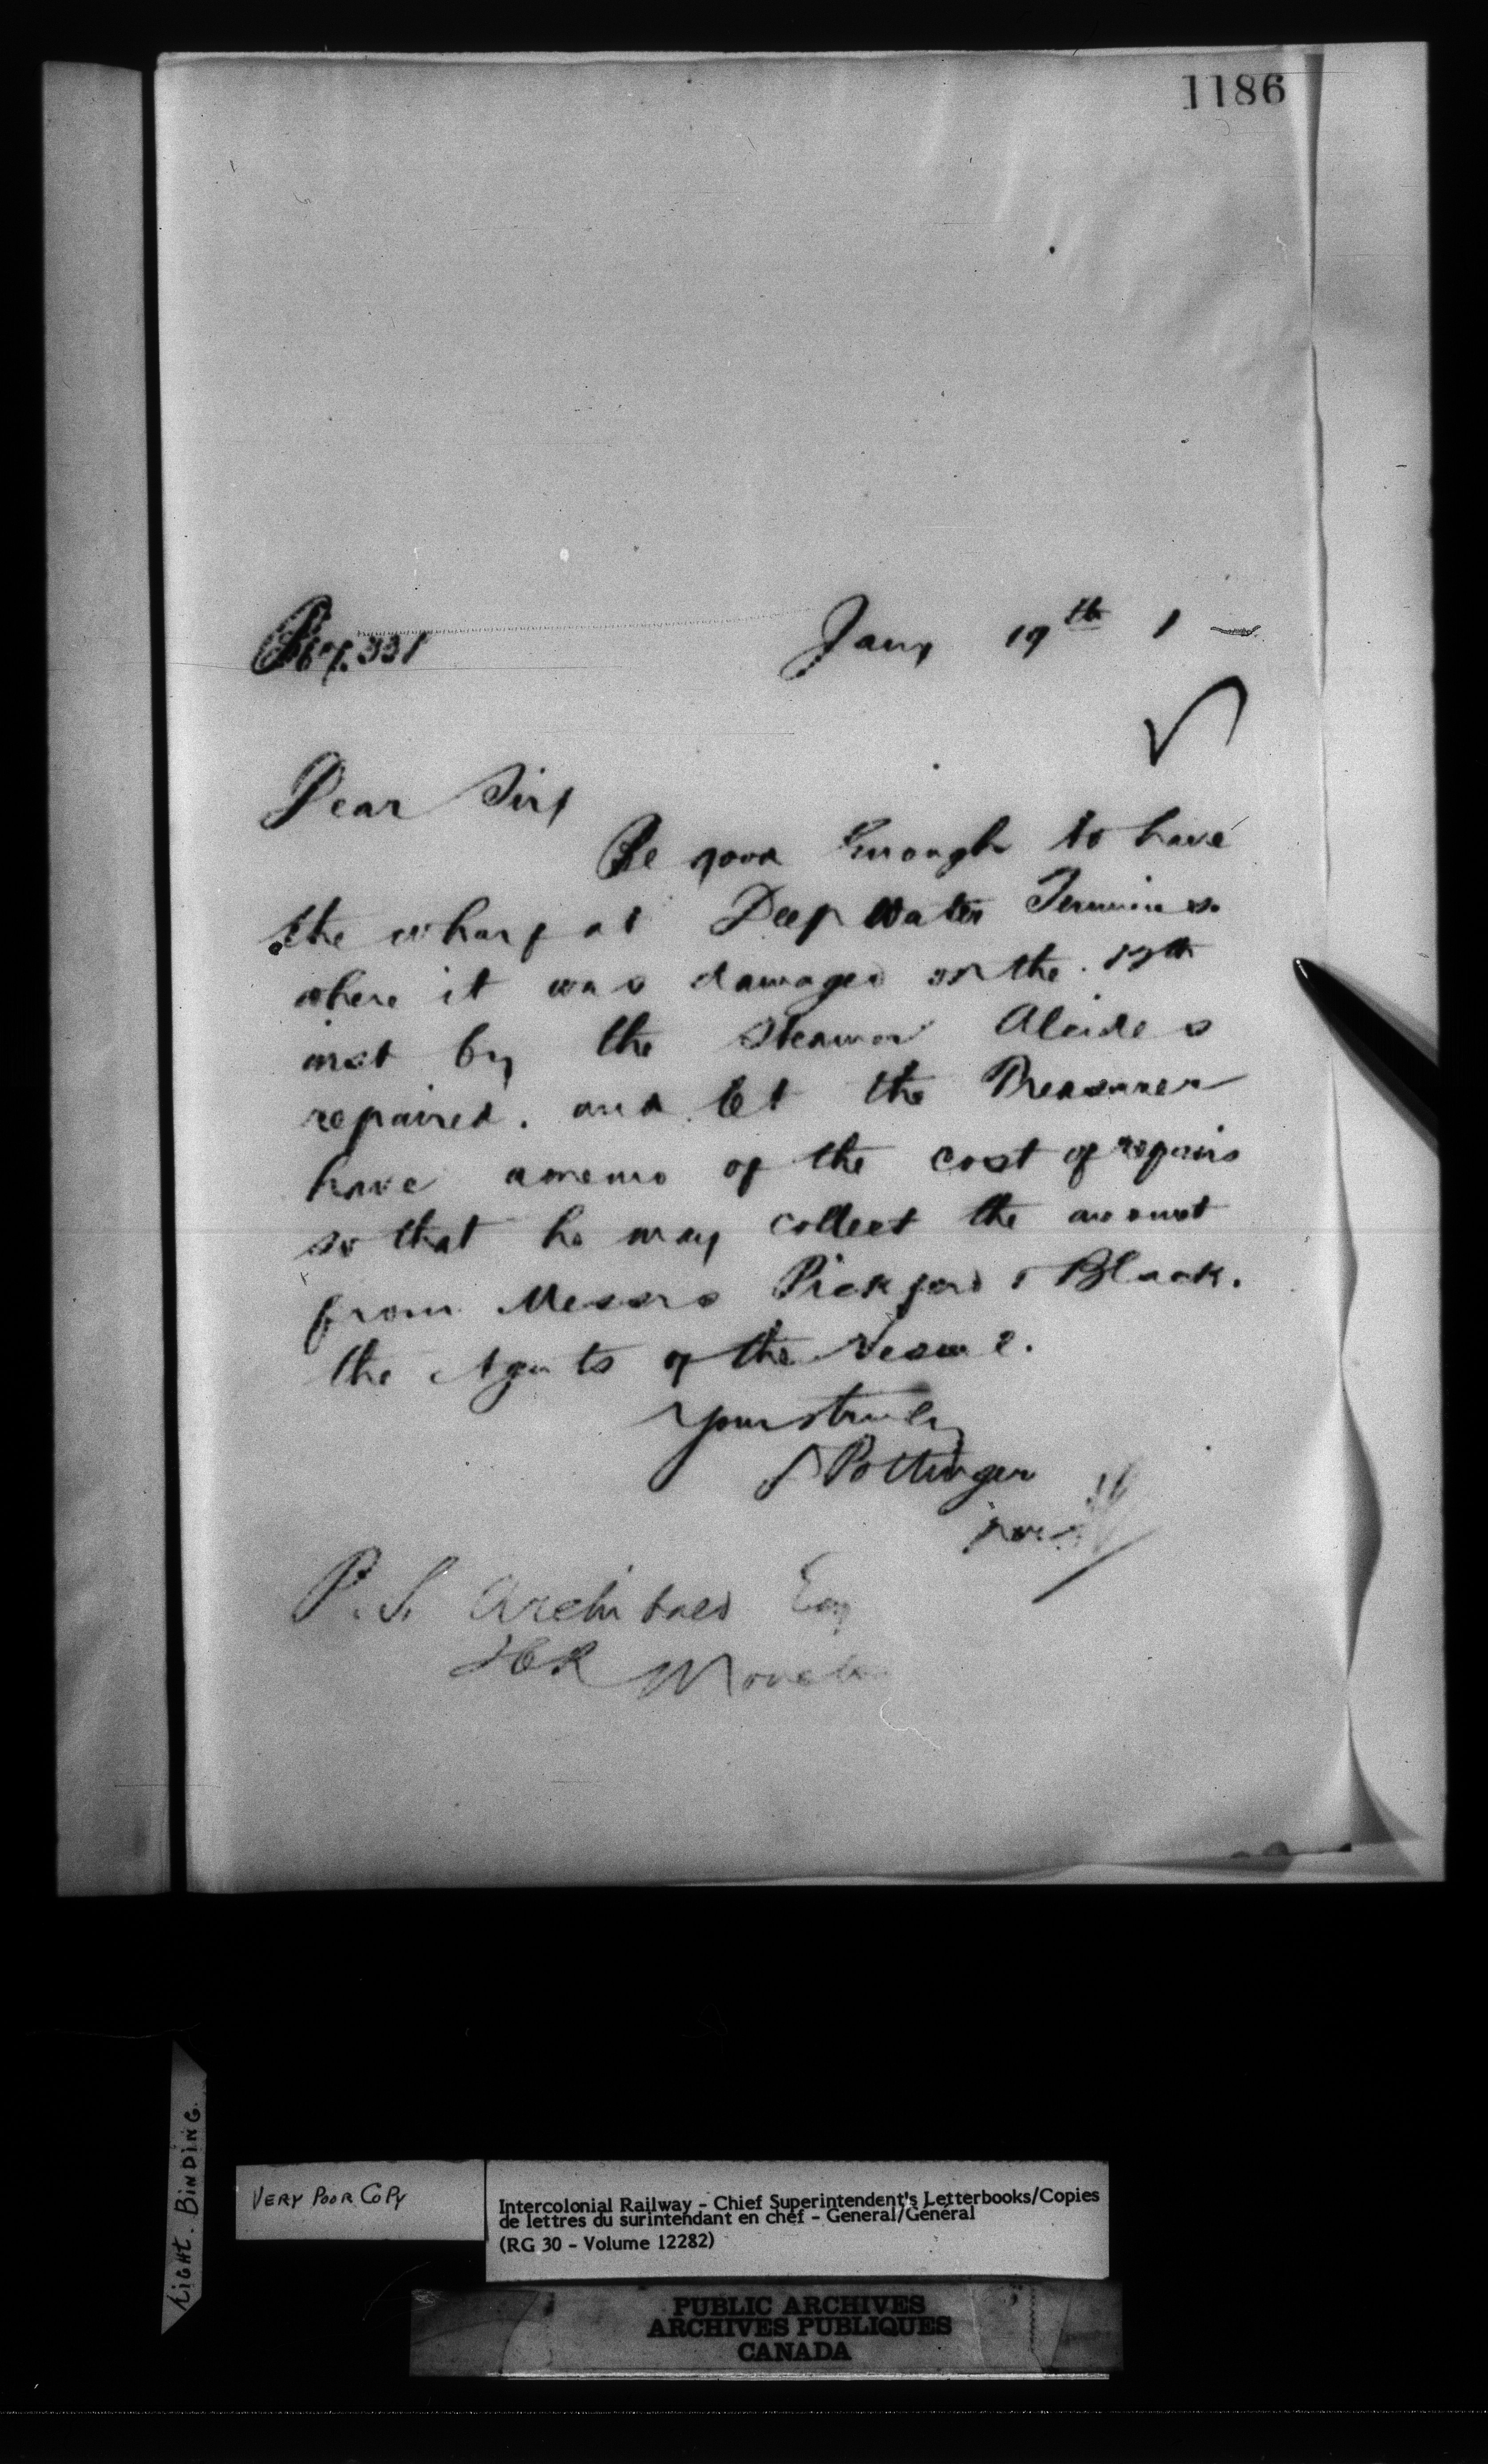 1186
Jany 19th 1
Dear Sir,
Be good Enough to have
the wharf at Deep Water Terminus
where it was damaged on the 17th
inst by the Steamer Alcides
repaired. and let the Treasurer
have a memo of the cost of repairs
so that he may collect the amount
from Messrs Pickford & Black.
the Agents of the Vessel.
Yours truly
D Pottinger
per
P. S. Archibald Esq
Moncton
TIGHT. BINDING.
VERY POOR COPY
Intercolonial Railway - Chief Superintendent's Letterbooks/Copies
de lettres du surintendant en chef - General/Général
(RG 30 - Volume 12282)
PUBLIC ARCHIVES
ARCHIVES PUBLIQUES
CANADA